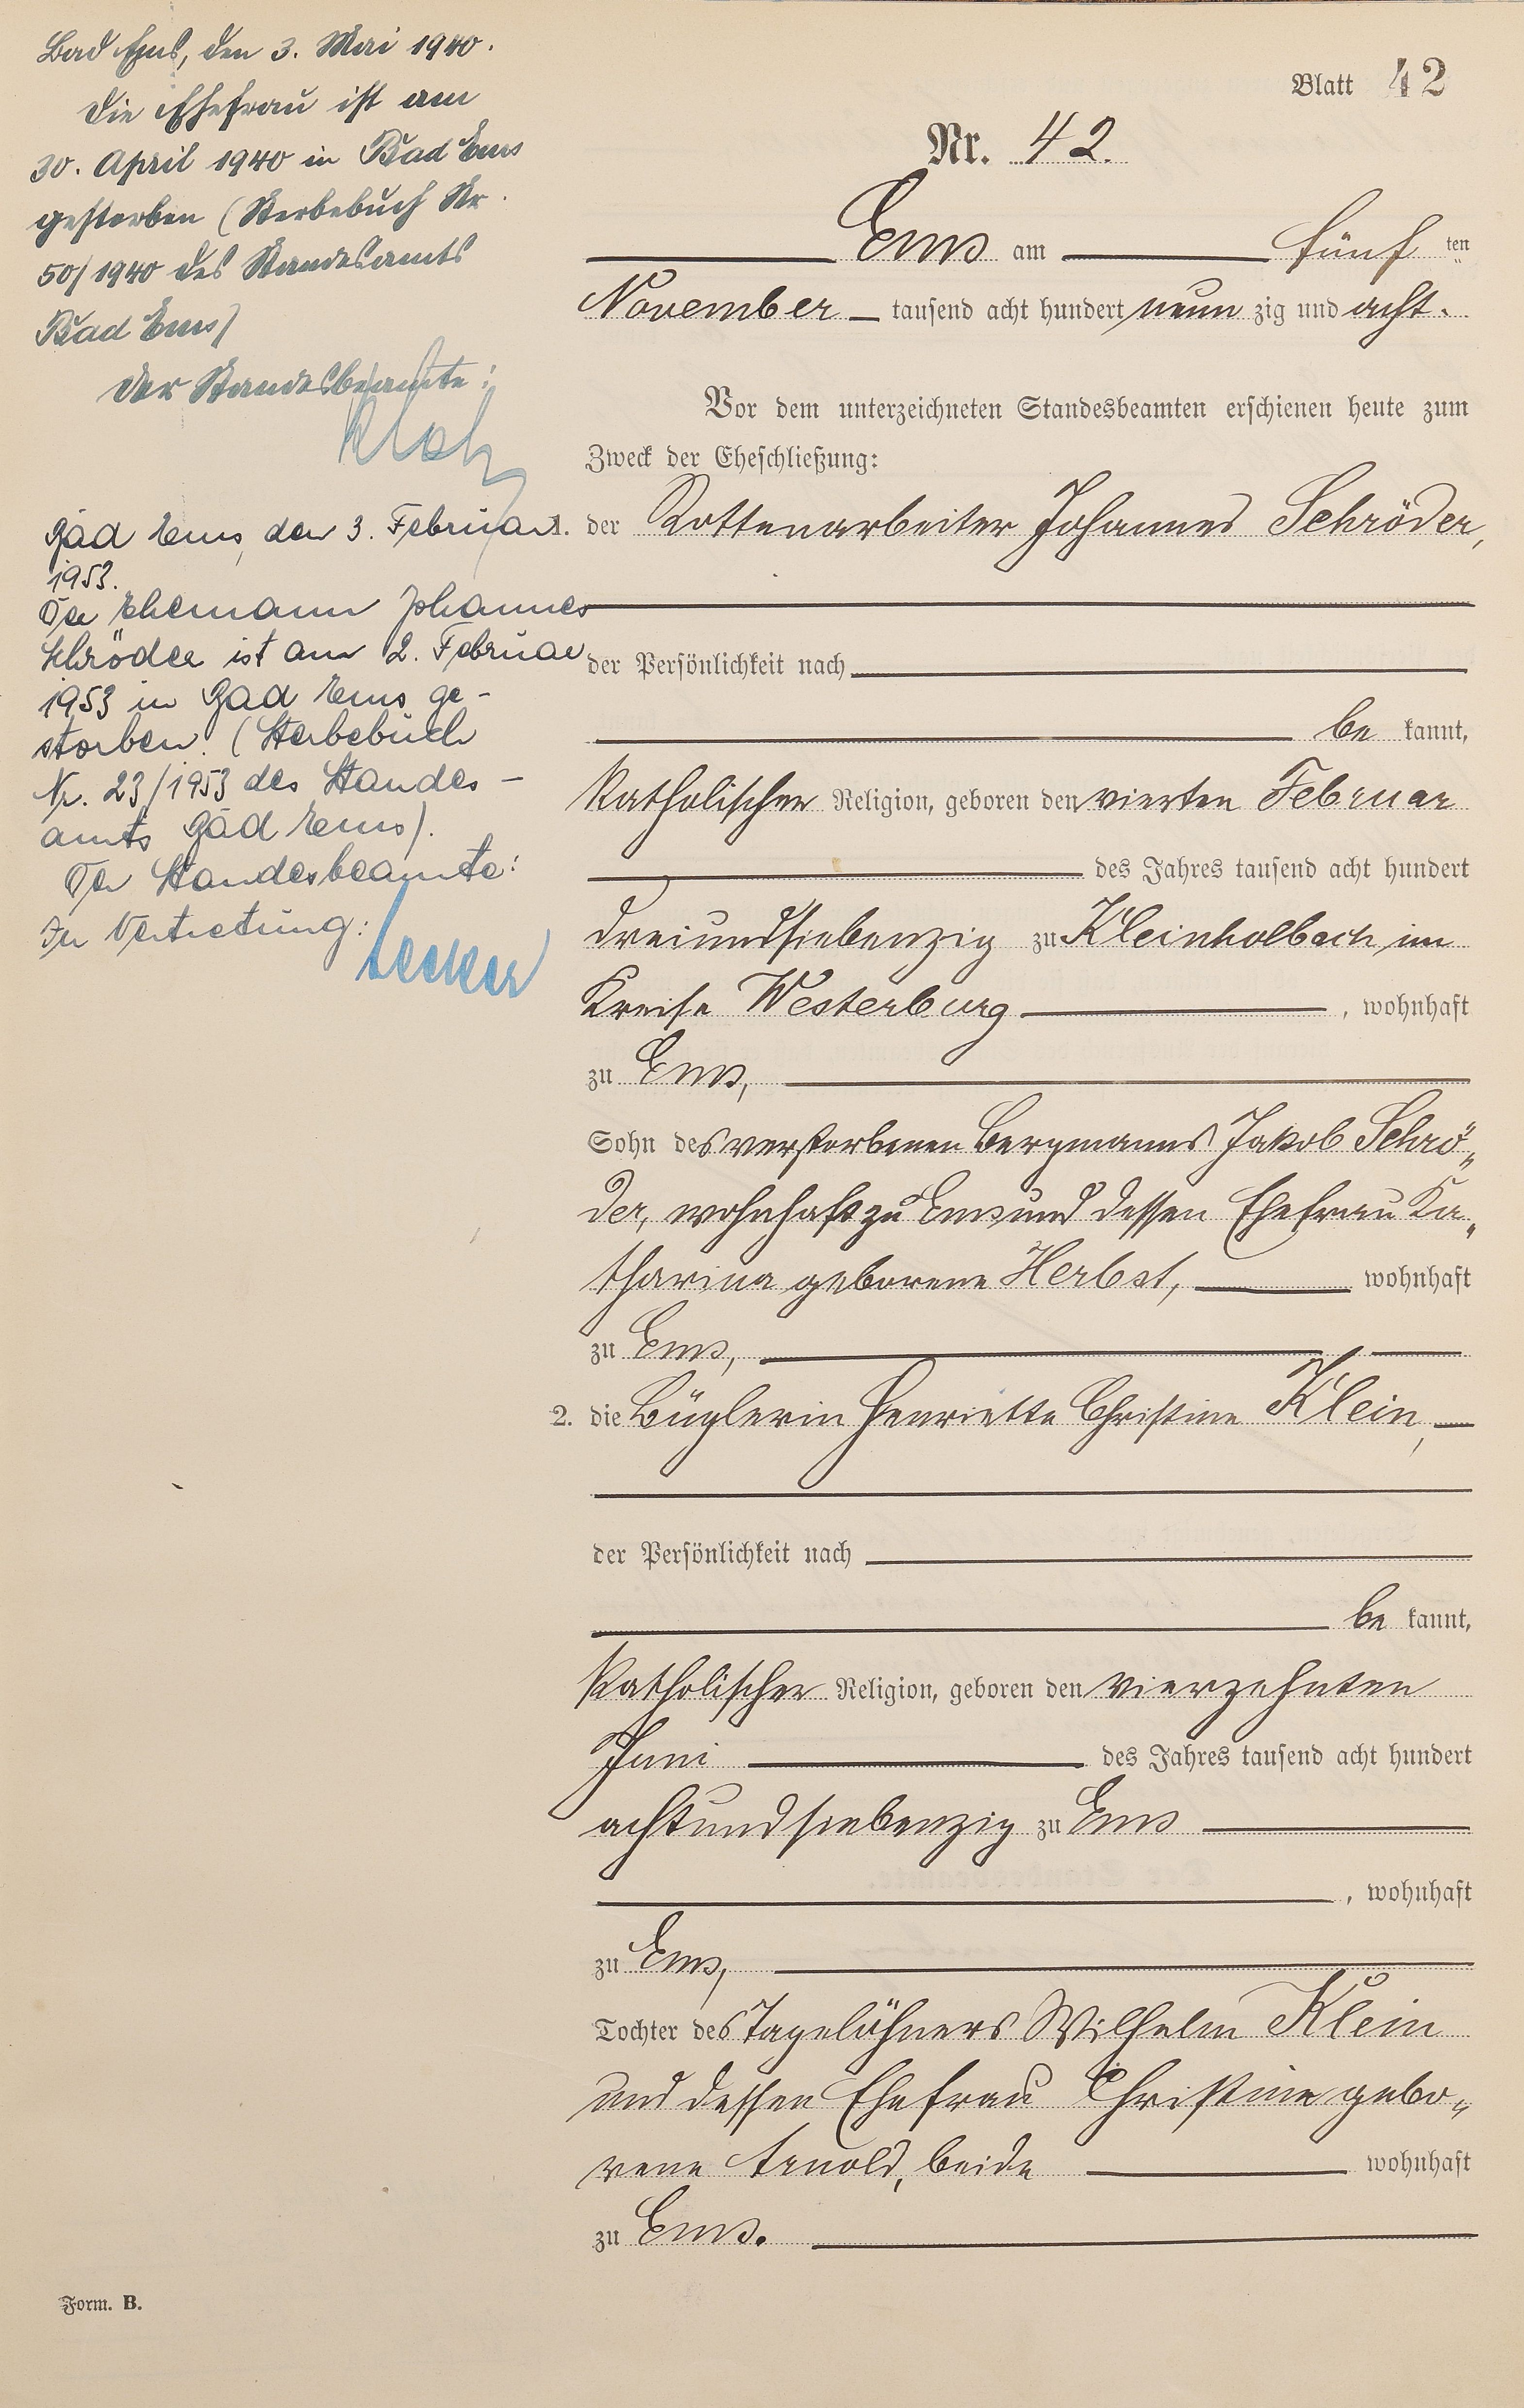 Bad Ems, den 3. Mai 1940.
Die Ehefrau ist am
30. April 1940 in Bad Ems
gestorben (Sterbebuch Nr.
50/1940 des Standesamts
Bad Ems)
Der Standesbeamte:
Bad Ems, den 3. Februar
1953.
Der Ehemann Johannes
Schröder ist am 2. Februar
1953 in Bad Ems ge-
storben. (Sterbebuch
Nr. 23/1953 des Standes-
amts Bad Ems).
Der Standesbeamte:
In Vertretung:
Becker
Blatt 42
Nr. 42.
Ems am fünf ten
November tausend acht hundert neun zig und acht.
Vor dem unterzeichneten Standesbeamten erschienen heute zum
Zweck der Eheschließung:
1. der Rottenarbeiter Johannes Schröder,
der Persönlichkeit nach
be kannt,
katholischer Religion, geboren den vierten Februar
des Jahres tausend acht hundert
dreiundsiebenzig zu Kleinholbach im
Kreise Westerburg, wohnhaft
zu Ems,
Sohn des verstorbenen Bergmanns Jakob Schrö„
der, wohnhaft zu Ems und dessen Ehefrau Ka„
tharina geborene Herbst, wohnhaft
zu Ems,
2. die Büglerin Henriette Christine Klein,
der Persönlichkeit nach
be kannt,
katholischer Religion, geboren den vierzehnten
Juni des Jahres tausend acht hundert
achtundsiebenzig zu Ems
, wohnhaft
zu Ems,
Tochter des Tagelöhners Wilhelm Klein
und dessen Ehefrau Christine gebo„
rene Arnold, beide wohnhaft
zu Ems.
Form. B.